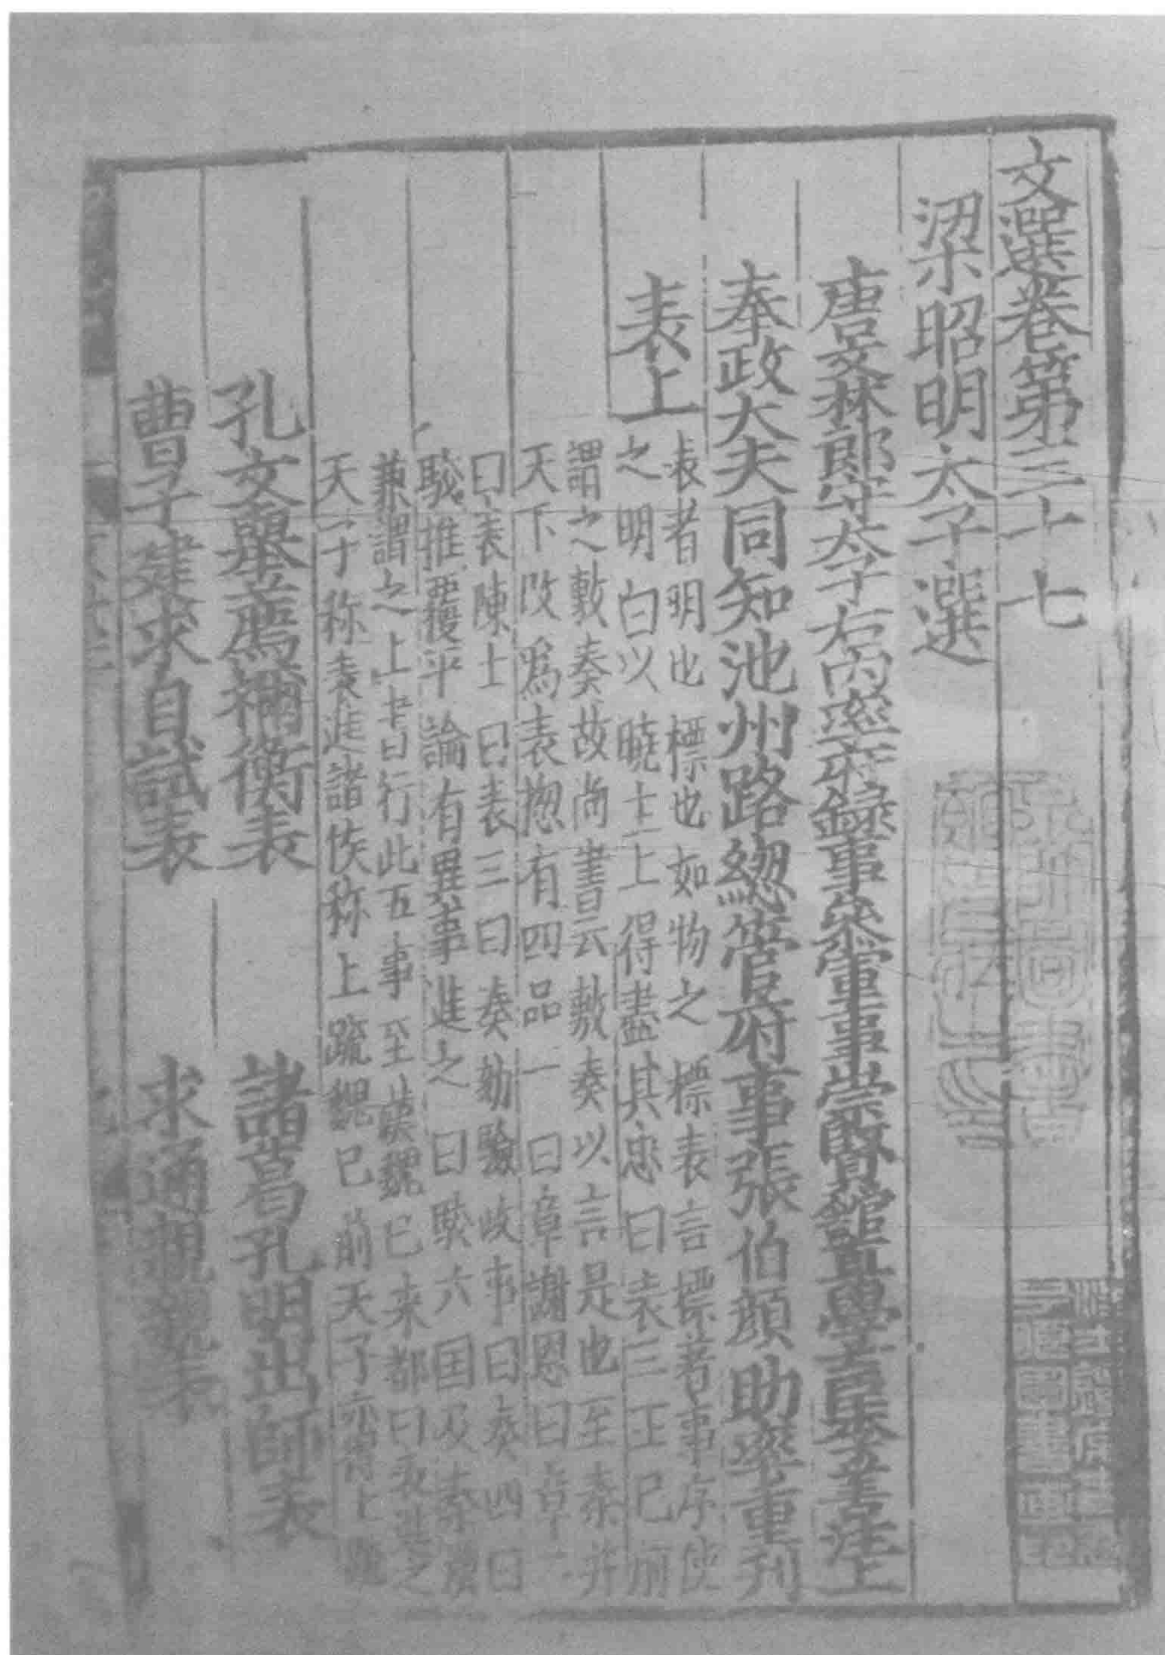 文選卷第三十七
梁昭明太子選
唐文林郎守太子右內率府錄事參軍事崇賢館直學士臣李善注上
奉政大夫同知池州路緫管府事張伯顔助率重刊
表上
表者明也標也如物之標表言標著事序使
之明白以曉主上得盡其忠曰表三王已前
謂之敷奏故尚書云敷奏以言是也至秦并
天下改爲表揔有四品一曰章謝恩曰章二
曰表陳士曰表三曰奏劾驗政事曰奏四曰
駮推覆平論有異事進之曰駮六国及秦漢
兼謂之上書曰行此五事至漢魏已来都曰表進之
天子称表進諸侯称上疏魏已前天子亦得上疏
孔文舉薦禰衡表
諸葛孔明出師表
曹子建求自試表
求通親親表